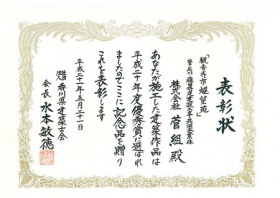 表彰状
「観音寺市 燧望苑」
株式会社 菅組 殿
あなたが施工した建築作品は
平成二十年度優秀賞に選ばれ
ましたのでここに記念品を贈り
これを表彰します
平成二十一年五月二十一日
香川県建築士会
会長 水本敏徳